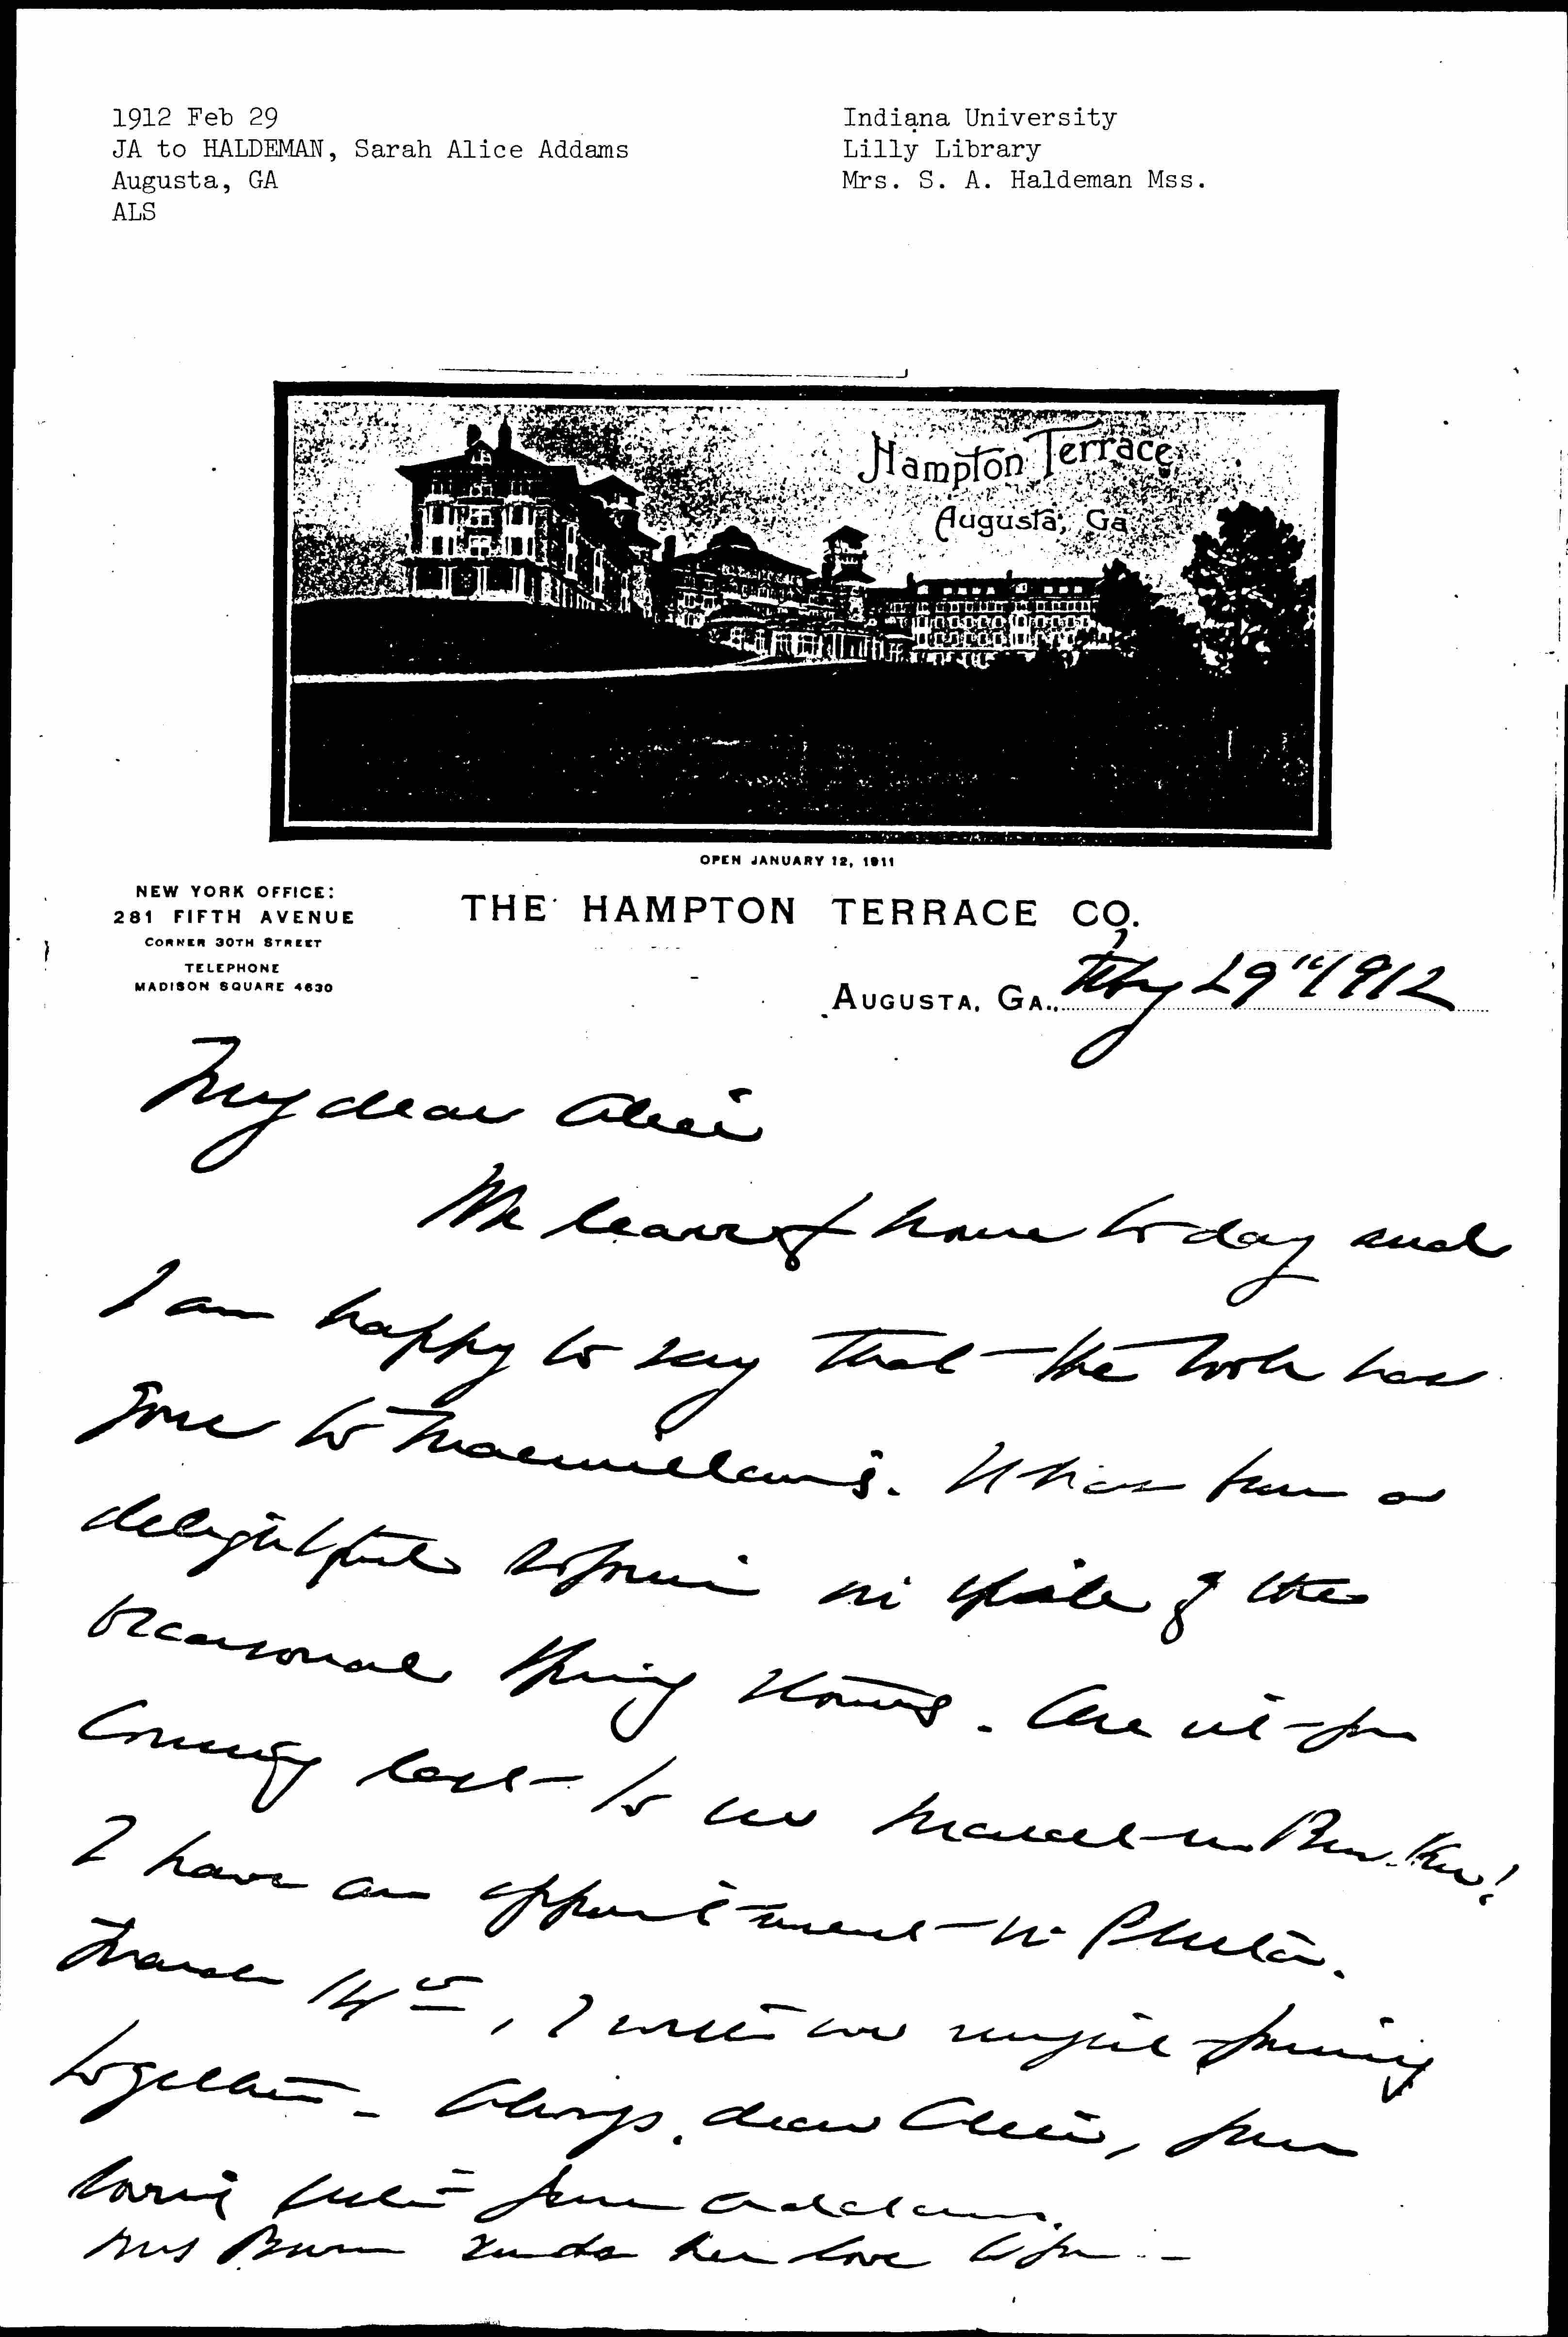 1912 Feb 29
JA to HALDEMAN, Sarah Alice Addams
Augusta, GA
ALS
Indiana University
Lilly Library
Mrs. S. A. Haldeman Mss.
Hampton Terrace
Augusta, Ga
OPEN JANUARY 12, 1911
NEW YORK OFFICE:
281 FIFTH AVENUE
CORNER 30TH STREET
TELEPHONE
MADISON SQUARE 4630
THE HAMPTON TERRACE CO.
AUGUSTA, GA., Feby 29" 1912
My dear Alice
We leave for home to day and
I am happy to say that the book has
gone to Macmillan's. It has been a
delightful sojourn in spite of the
occasional spring storms. Are n't you
coming east to us
I have an appointment in Phila.
March 14th, I wish we might journey
together. Always, dear Alice, your
loving sister Jane Addams.
Mrs Bowen sends her love to you --